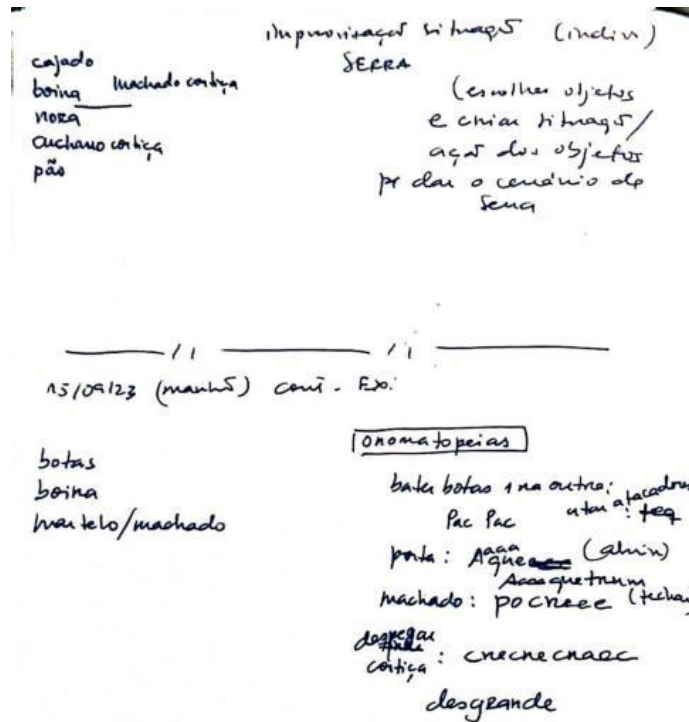 improvisação situação (indiv)
SERRA
cajado
boina machado cortiça
nora
cucharro cortiça
pão
(escolher objetos
e criar situação/
ação dos objetos
pr dar o cenário de
Serra
15/09/23 (manhã) cont. Exp.
botas
boina
martelo/machado
onomatopeias
bater botas 1 na outra:
Pac Pac
atar atacadores
: teq
porta: Aaaa (abrir)
Aaaaquetrum
machado: pocreee (fechar
despegar
cortiça: crecrecraec
desgrande